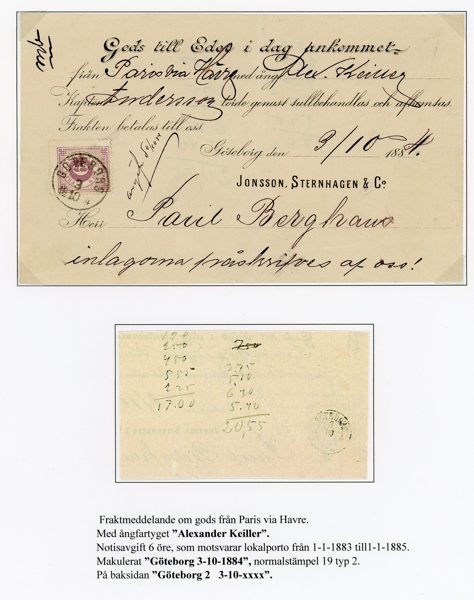 Gods till Eder i dag ankommet
från Paris via Havre med ång. Alex. Keiller
Kapten Andersson torde genast tullbehandlas och afhemtas.
Frakten betalas till oss.
Göteborg den 3/10 1884.
GÖTEBORG
3
10
JONSSON, STERNHAGEN & Co.
Herr Paul Berghaus
inlagorna påskrifves af oss!
250
750
450
3.75
555
225
6.30
17.00
5.40
20,55
Fraktmeddelande om gods från Paris via Havre.
Med ångfartyget ”Alexander Keiller”.
Notisavgift 6 öre, som motsvarar lokalporto från 1-1-1883 till1-1-1885.
Makulerat ”Göteborg 3-10-1884”, normalstämpel 19 typ 2.
På baksidan ”Göteborg 2   3-10-xxxx”.